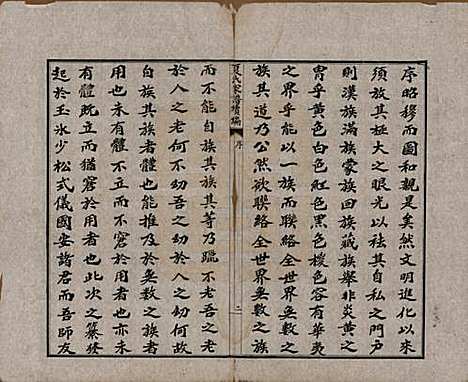 序昭穆而固和親是矣然文明進化以來
須放其極大之眼光以祛其自私之門戶
則漢族滿族蒙族回族藏族舉非炎黃之
冑乎黃色白色紅色黑色椶色容有華夷
之界乎能以一族而聯絡全世界無數之
族其道乃公然欲聯絡全世界無數之族
夏氏家譜續編 序
而不能自族其族其等乃疏不老吾之老
於人之老何不幼吾之幼於人之幼何故
自族其族者體也能推及於無數之族者
用也未有體不立而不窘於用者也亦未
有體既立而猶窘於用者也此次之纂發
起於玉氷少松式儀國安諸君而吾師友